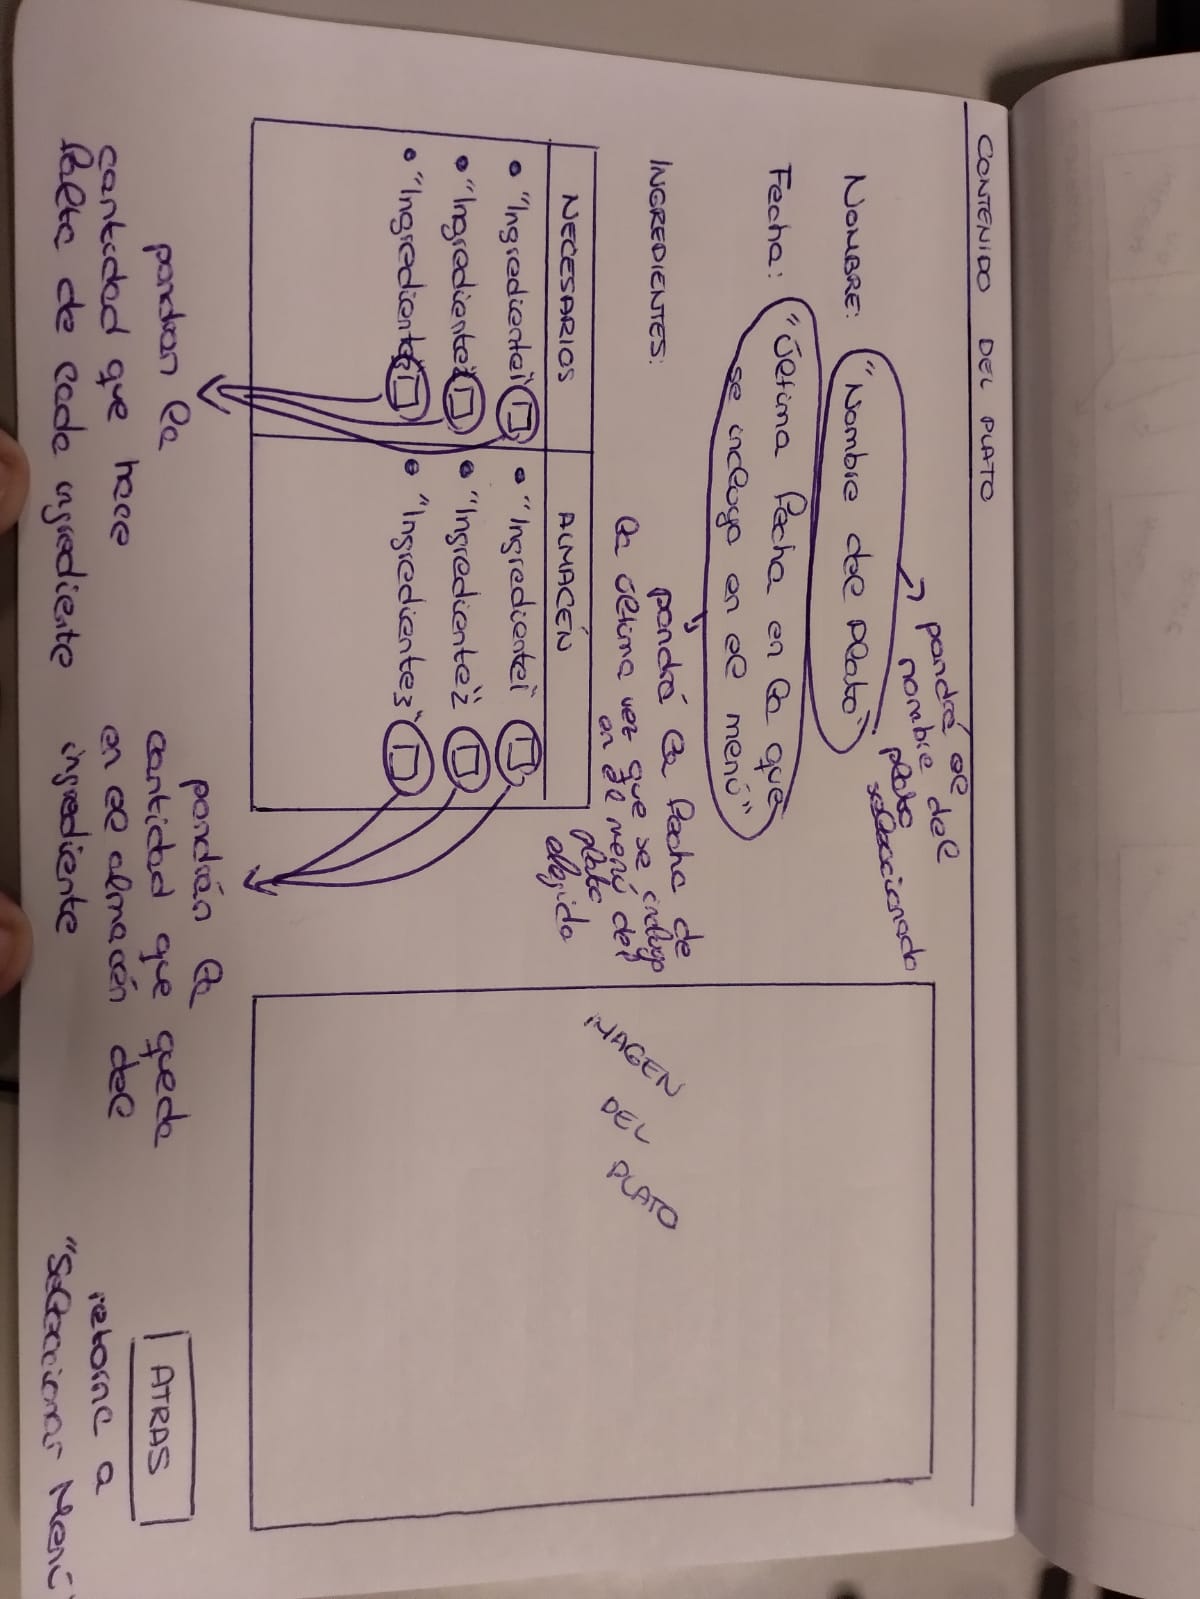 CONTENIDO DEL PLATO
pondrá el
nombre del
plato
seleccionado
NOMBRE: "Nombre del Plato"
Fecha: "Última fecha en la que
se incluyo en el menú"
pondrá la fecha de
la última vez que se incluyo
en el menú del
plato
elegido
INGREDIENTES:
NECESARIOS ALMACÉN
• "Ingrediente1" • "Ingrediente1"
• "Ingrediente2" • "Ingrediente2"
• "Ingrediente3" • "Ingrediente3"
IMAGEN
DEL
PLATO
pondran la
cantidad que hace
falta de cada ingrediente
pondrán la
cantidad que queda
en el almacén del
ingrediente
ATRAS
retorna a
"Seleccionar Menú"